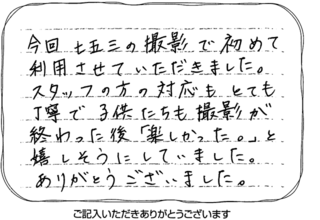 今回七五三の撮影で初めて
利用させていただきました。
スタッフの方の対応もとても
丁寧で子供たちも撮影が
終わった後「楽しかった。」と
嬉しそうにしていました。
ありがとうございました。
ご記入いただきありがとうございます